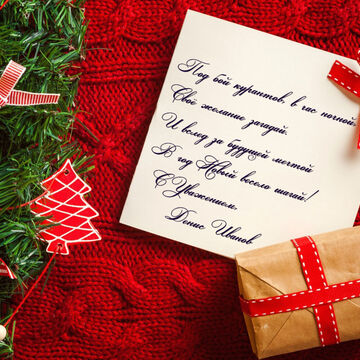 Под бой курантов, в час ночной.
Своё желание загадай.
И вслед за будущей мечтой
В год Новый весело шагай!
С Уважением.
Денис Иванов